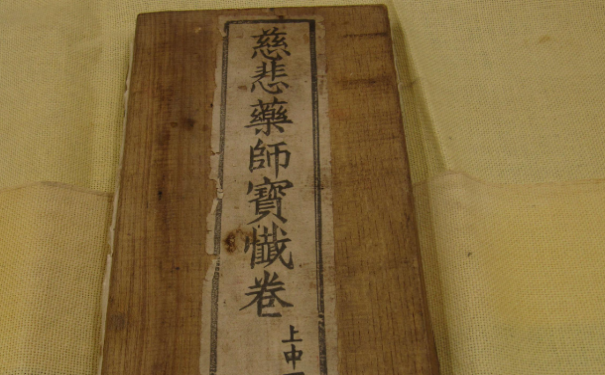 慈悲藥師寶懺卷
上中